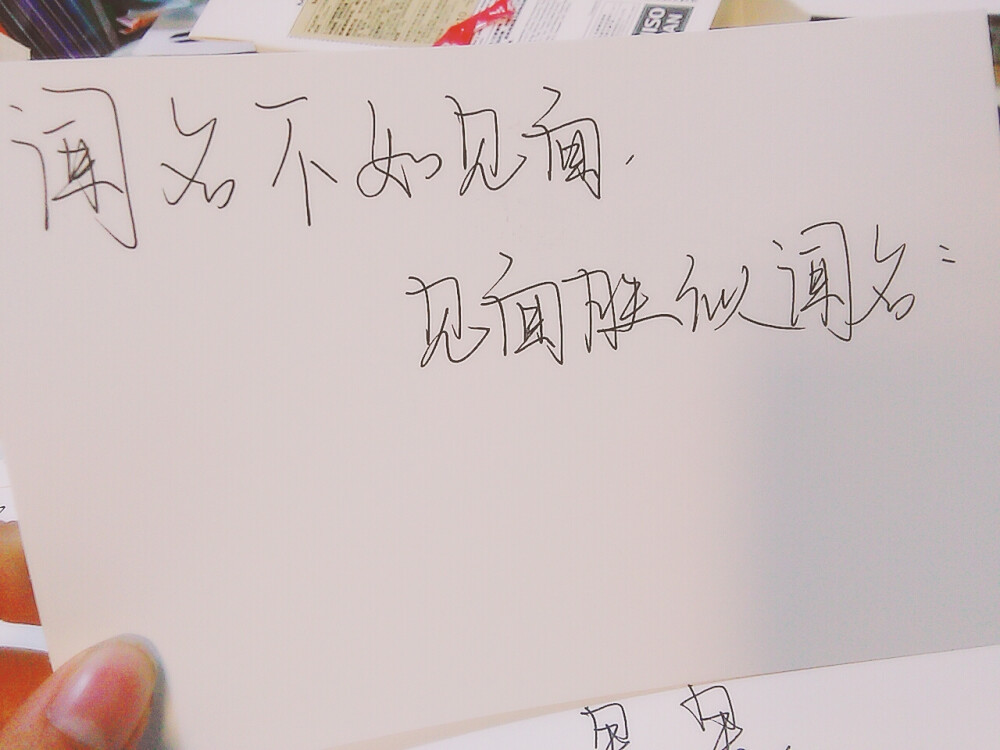 闻名不如见面.
见面胜似闻名: